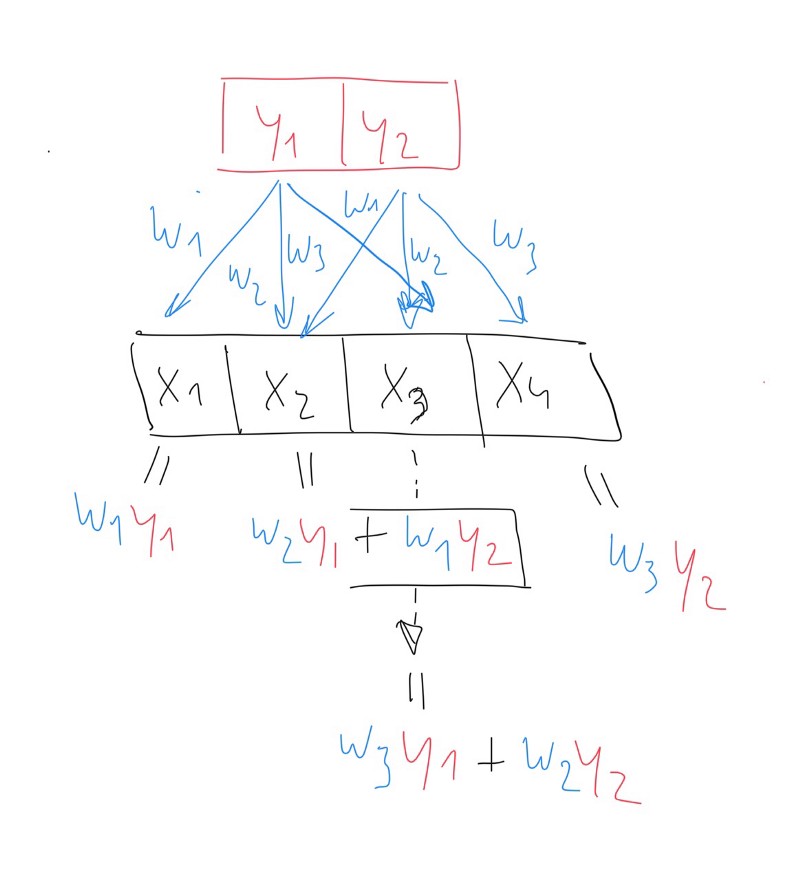 y1 y2
w1 w2 w3 w1 w2 w3
x1 x2 x3 x4
= = =
w1y1 w2y1 + w1y2 w3y2
=
w3y1 + w2y2